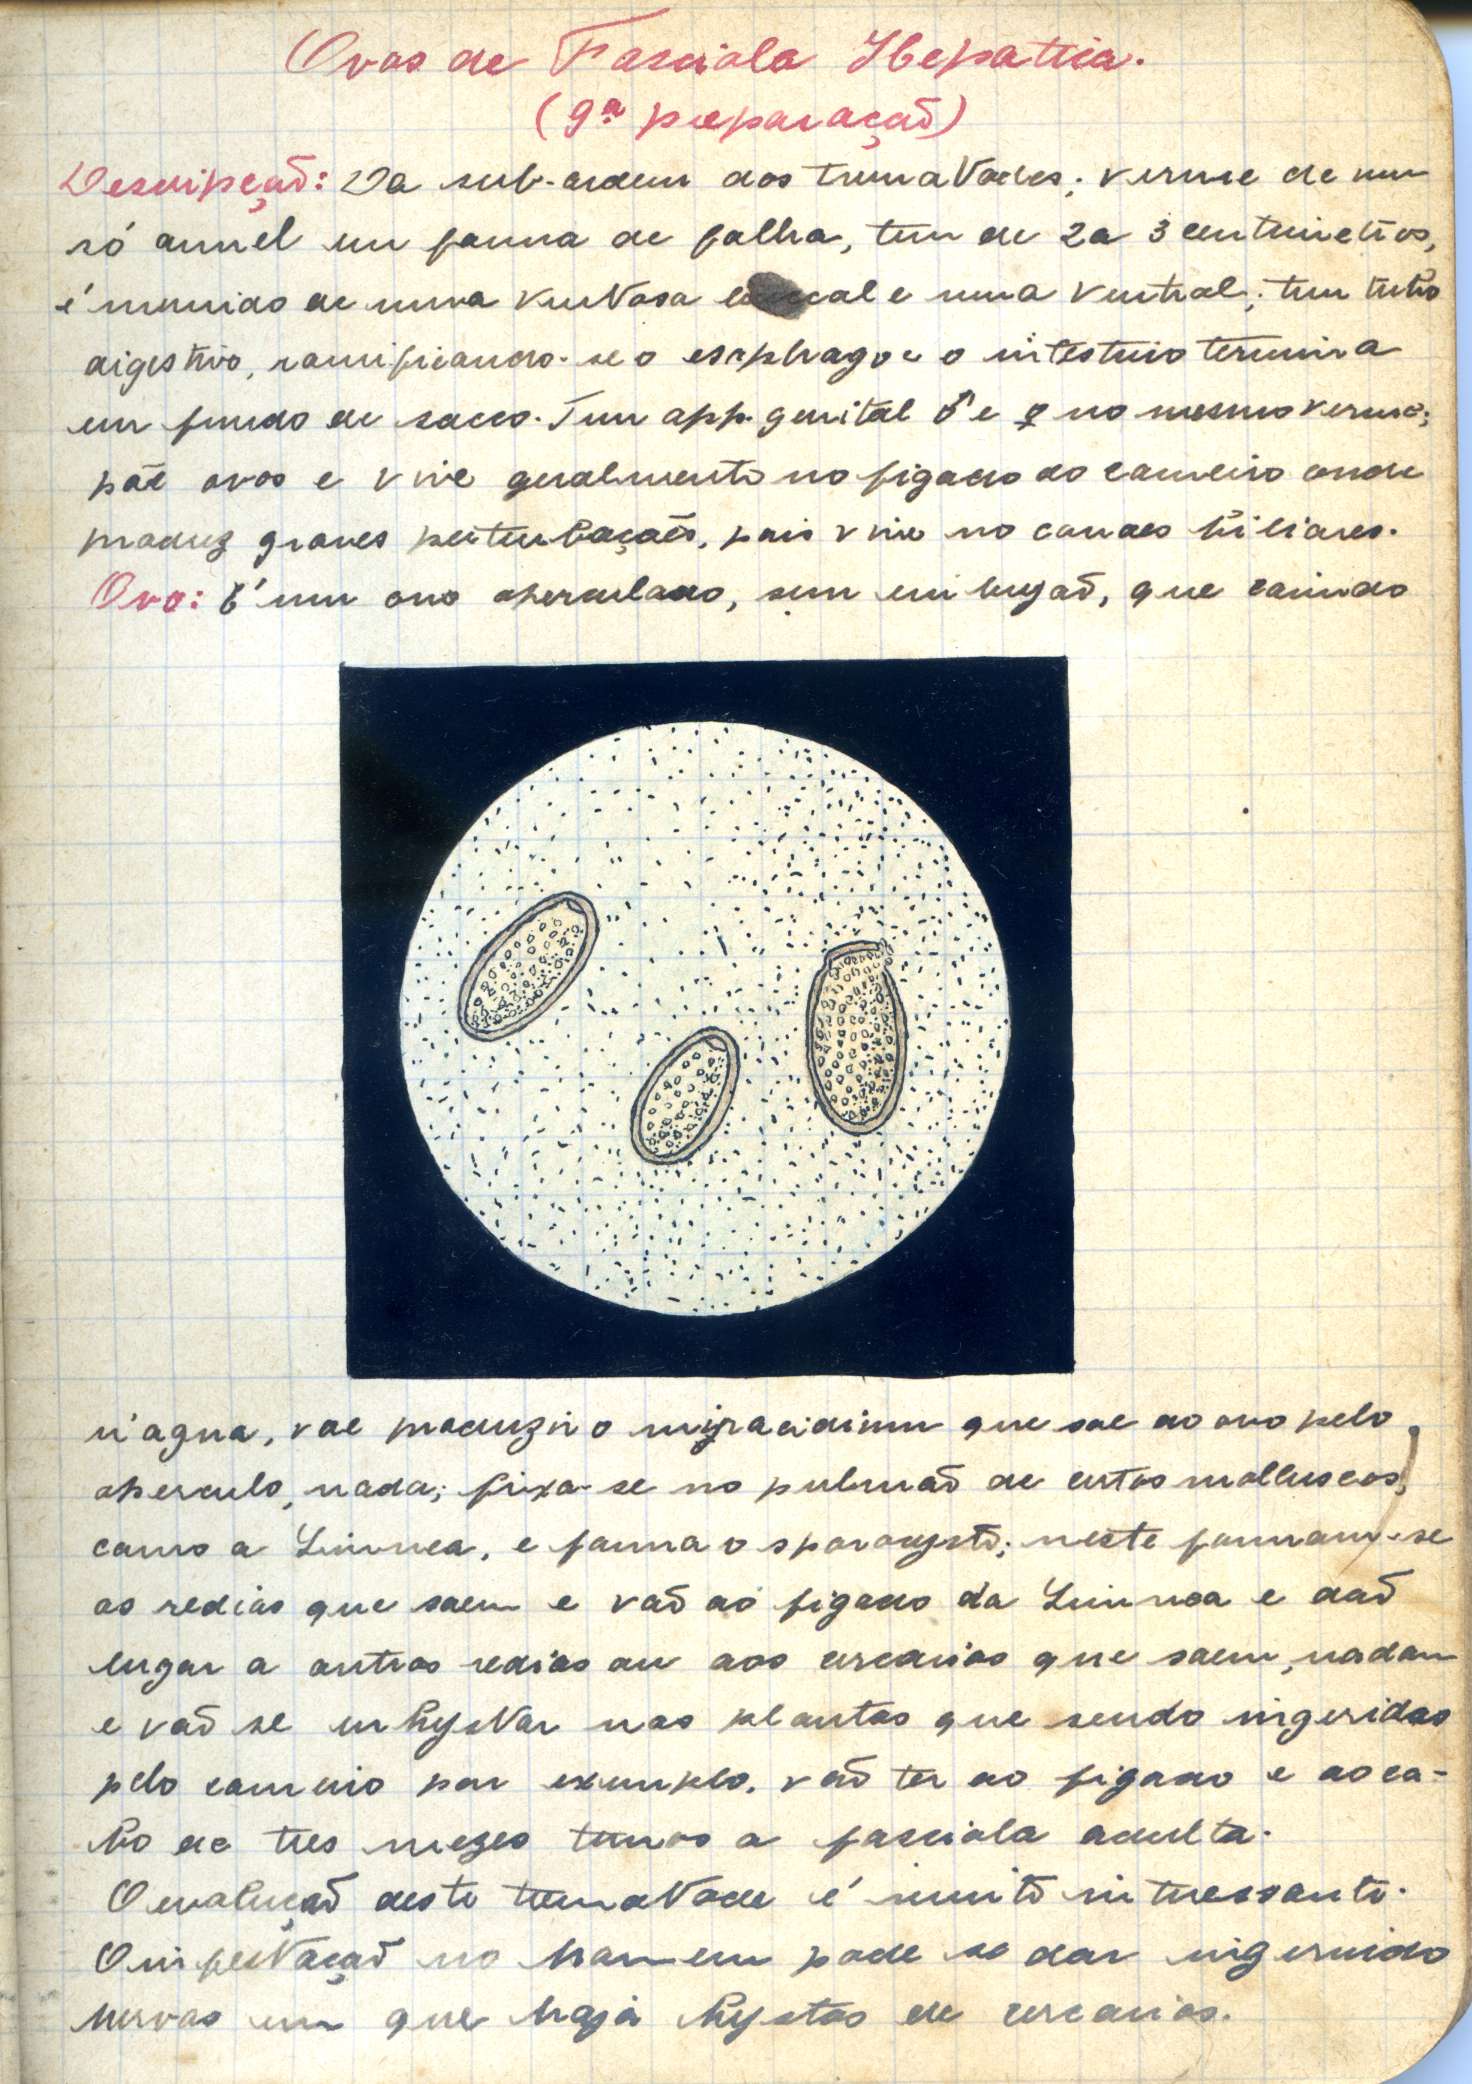 Ovos de Fasciola Hepatica.
(9ª preparação)
Descripção: Da sub-ordem dos trematodes; verme de um
só annel em forma de folha, tem de 2 a 3 centimetros,
é munido de uma ventosa buccal e uma ventral; tem tubo
digestivo, ramificando-se o esophago e o intestino termina
em fundo de sacco. Tem app. genital ♂ e ♀ no mesmo verme;
põe ovos e vive geralmente no figado do carneiro onde
produz graves perturbações, pois vive no canaes biliares.
Ovo: É um ovo operculado, sem embryão, que caindo
n'agua, vae produzir o miracidium que sae do ovo pelo
operculo, nada; fixa-se no pulmão de certos molluscos,
como a Limnea, e forma o sporocysto; neste formam-se
as redias que saem e vão ao figado da Limnea e dão
lugar a outras redias ou aos cercarias que saem, nadam
e vão se enkystar nas plantas que sendo ingeridas
pelo carneiro por exemplo, vão ter ao figado e ao ca-
bo de tres mezes temos a fasciola adulta.
O evolução deste trematode é muito interessante.
O infestação no homem pode se dar ingerindo
hervas em que haja kystos de cercarias.